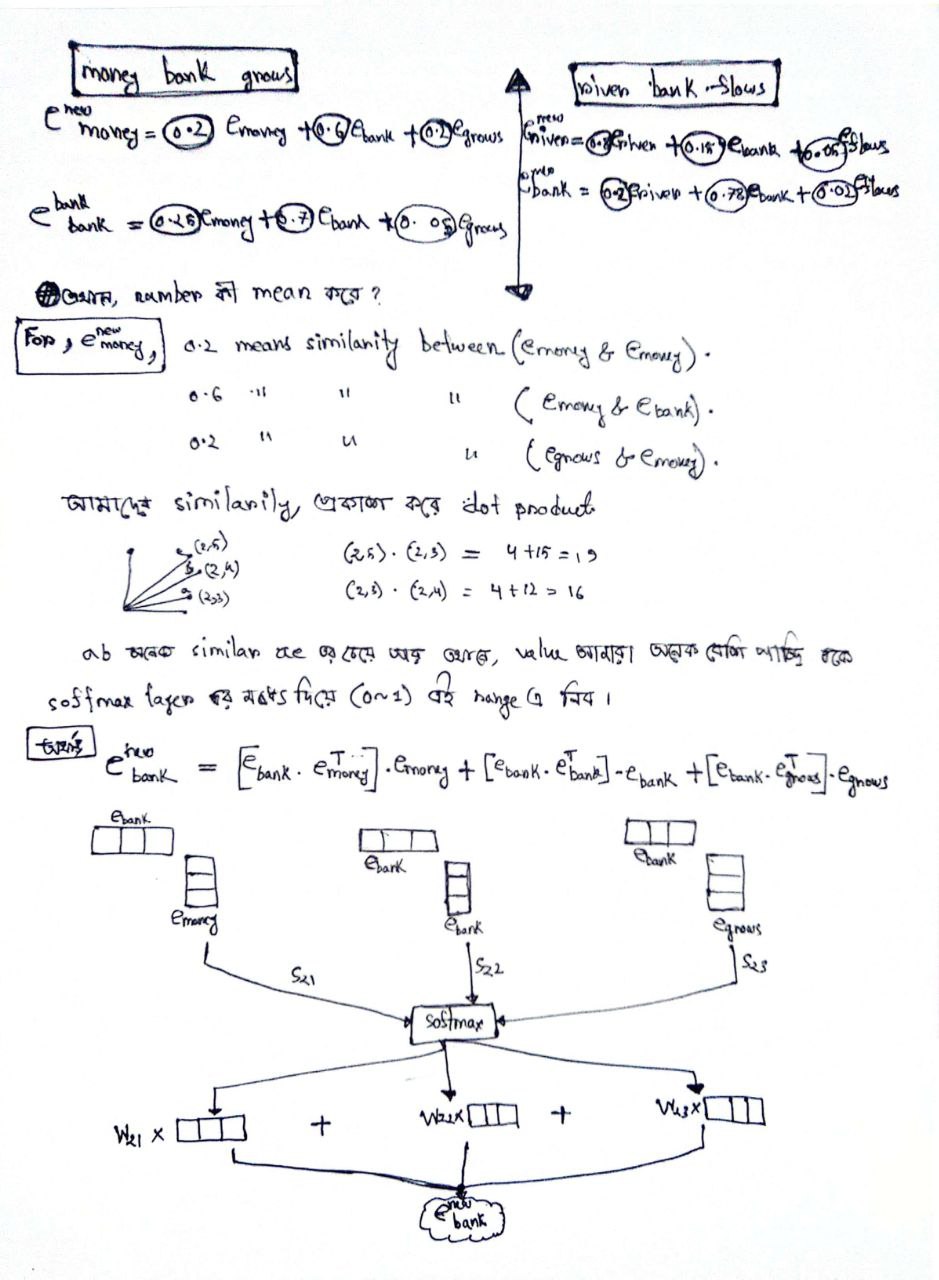 money bank grows
e new money = 0.2 e money + 0.6 e bank + 0.2 e grows
e bank bank = 0.25 e money + 0.7 e bank + 0.05 e grows
River bank flows
e new river = 0.8 e river + 0.15 e bank + 0.05 e flows
e new bank = 0.2 e river + 0.78 e bank + 0.02 e flows
এখানে, number কী mean করে ?
For, e new money, 0.2 means similarity between (e money & e money).
0.6 " " " (e money & e bank).
0.2 " " " (e grows & e money).
আমাদের similarity, প্রকাশ করে dot product
(2,5)
b (2,4)
a (2,3)
(2,5) · (2,3) = 4+15 = 19
(2,3) · (2,4) = 4+12 = 16
ab অনেক similar ac এর চেয়ে এখানে, value আমরা অনেক বেশি পাচ্ছি
softmax layer এর মধ্য দিয়ে (0~1) এই range এ নিব ।
e new bank = [e bank · e T money] · e money + [e bank · e T bank] · e bank + [e bank · e T grows] · e grows
e bank
e bank
e bank
e money
e bank
e grows
S21
S22
S23
Softmax
W21 x + W22 x + W23 x
e new bank